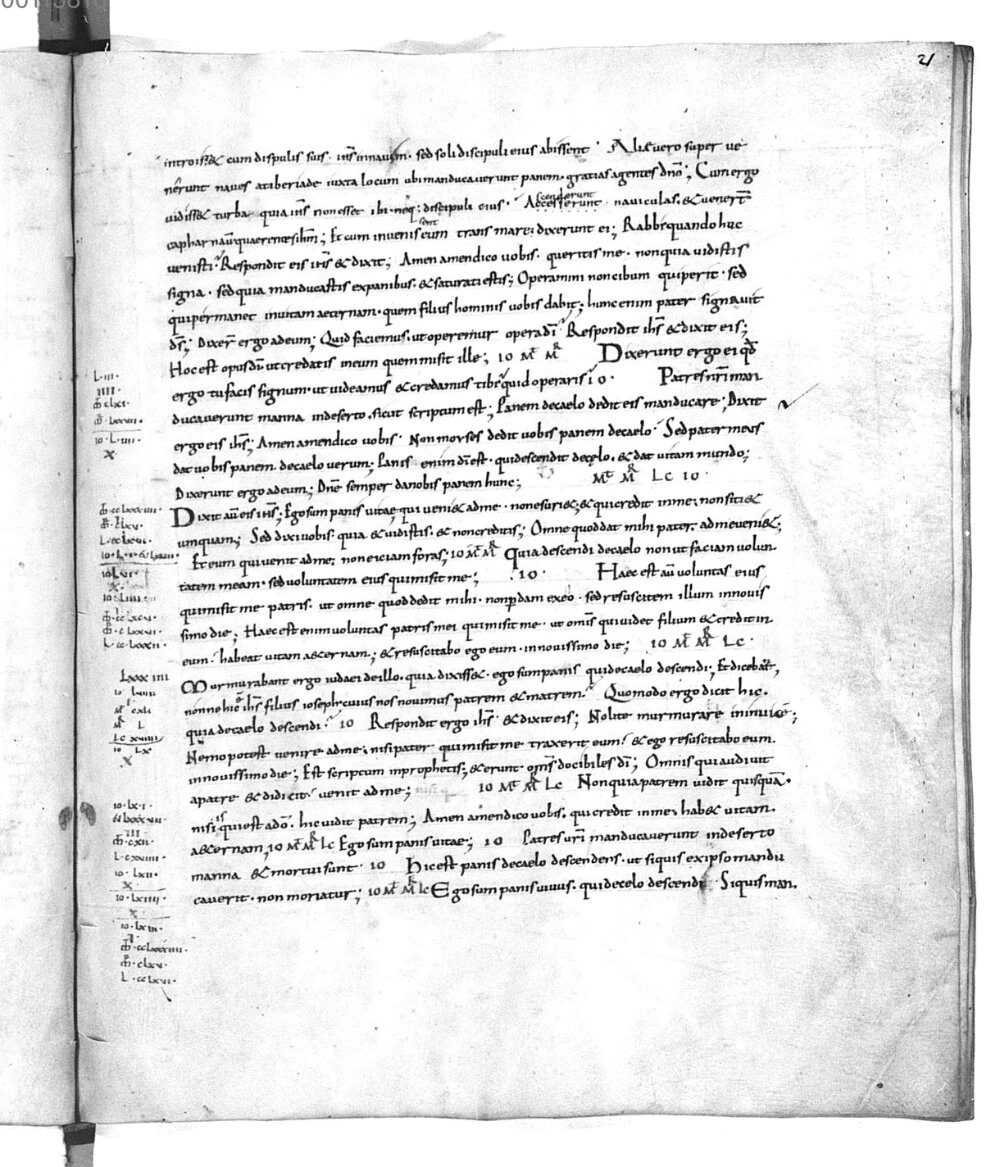 21
introisset cum discipulis suis · ihs in navim · sed soli discipuli eius abissent · Aliae vero super ve
nerunt naves a tiberiade iuxta locum ubi manducaverunt panem · gratias agentes dno ; Cum ergo
vidisset turba quia ihs non esset ibi · neq: discipuli eius · Accesserunt naviculas · & venert
scenderunt
capharnaum quaerentes ihm ; Et cum invenissent eum trans mare ; dixerunt ei ; Rabbi quando huc
venisti · Respondit eis ihs & dixit ; Amen amen dico vobis · queritis me · non quia vidistis
signa · sed quia manducastis ex panibus · & saturati estis ; Operamini non cibum qui perit · sed
qui permanet in vitam aeternam · quem filius hominis vobis dabit ; hunc enim pater signavit
ds ; Dixer ergo ad eum ; Quid faciemus · ut operemur opera di · Respondit ihs & dixit eis ;
Hoc est opus di ut credatis in eum quem misit ille ; IO MT MR Dixerunt ergo ei qd
ergo tu facis signum · ut videamus & credamus tibi · quid operaris IO · Patres nri man
ducaverunt manna in deserto · sicut scriptum est ; Panem de caelo dedit eis manducare ; Dixit
ergo eis ihs ; Amen amen dico vobis · Non moyses dedit vobis panem de caelo · Sed pater meus
dat vobis panem de caelo verum ; Panis enim di est · qui descendit de celo · & dat vitam mundo ;
Dixerunt ergo ad eum ; Dne semper da nobis panem hunc ; MT MR LC IO ·
Dixit au eis ihs ; Ego sum panis vitae · qui venit ad me · non esuriet ; & qui credit in me ; non sitiet
umquam ; Sed dixi vobis · quia & vidistis · & non creditis ; Omne quod dat mihi pater · ad me veniet ;
Et eum qui venit ad me ; non eiciam foras ; IO MT MR Quia descendi de caelo non ut faciam volun
tatem meam · sed voluntatem eius qui misit me ; · IO · Haec est au voluntas eius
qui misit me patris · ut omne quod dedit mihi · non pdam ex eo · sed resuscitem illum in novis
simo die ; Haec est enim voluntas patris mei qui misit me · ut omis qui videt filium & credit in
eum · habeat vitam aeternam ; & resuscitabo ego eum · in novissimo die ; IO MT MR LC ·
Murmurabant ergo iudaei de illo · quia dixisset · ego sum panis qui de caelo descendi ; Et dicebat ;
nonne hic e ihs filius ioseph cuius nos novimus patrem & matrem · Quomodo ergo dicit hic ·
quia de caelo descendi · IO Respondit ergo ihs & dixit eis ; Nolite murmurare in invice ;
Nemo potest venire ad me ; nisi pater qui misit me traxerit eum · & ego resuscitabo eum ·
in novissimo die ; Est scriptum in prophetis ; & erunt oms docibiles di ; Omnis qui audivit
a patre & didicit · venit ad me ; IO MT MR LC Non quia patrem vidit quisqua ·
nisi is qui est a do · hic vidit patrem ; Amen amen dico vobis · qui credit in me · habet vitam
aeternam ; IO MT MR LC Ego sum panis vitae ; IO Patres uri manducaverunt in deserto
manna & mortui sunt · IO Hic est panis de caelo descendens · ut siquis ex ipso mandu
caverit · non moriatur ; IO MT MR LC Ego sum panis vivus · qui de celo descendi · Siquis man ·